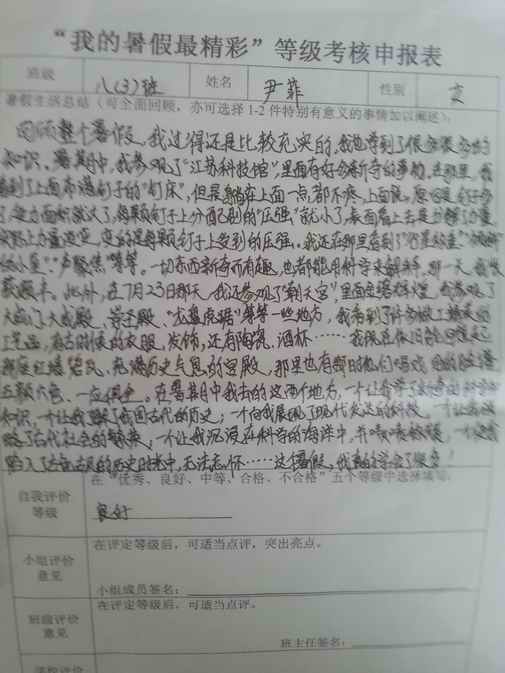 “我的暑假最精彩”等级考核申报表
班级 八(3)班 姓名 尹菲 性别 女
暑假生活总结（可全面回顾，亦可选择1-2件特别有意义的事情加以阐述）：
回顾整个暑假，我过得还是比较充实的，我也学到了很多很多的
知识。暑期中，我参观了“江苏科技馆”，里面有好多新奇的事物，在那里，我
看到了上面布满钉子的“钉床”，但是躺在上面一点都不疼，上面说，
了，受力面积就大了，每颗钉子上分配到的“压强”就小了，表面看上去是
每颗钉子上受到的压强。我还在那里看到了
“声聚焦”等等。一切东西新奇而有趣，也都能用科学来解释，那一天，我收
获颇丰。此外，在7月23日那天，我还参观了“朝天宫”，里面
大成殿、“龙盘虎踞”等等一些地方，我看到了许多做工精美的
工艺品，有古时候的衣服，发饰，还有陶瓷，酒杯……
充满历史气息的宫殿，那里也有
五颜六色，一应俱全。在暑期中我去的这两个地方，一个让我学了
知识，一个让我了解了我国古代的历史；一个向我展现了现代发达的科技，一个让我领
略了古代社会的繁荣，一个让我沉浸在科学的海洋中，并啧啧称赞，一个使我
陷入了古色古风的历史时光中，无法忘怀……这个暑假，我真的学会了很多！
在“优秀、良好、中等、合格、不合格”五个等级中选择填写。
自我评价
等级
良好
在评定等级后，可适当点评，突出亮点。
小组评价
意见
小组成员签名：
在评定等级后，可适当点评。
班级评价
意见
班主任签名：
学校评价